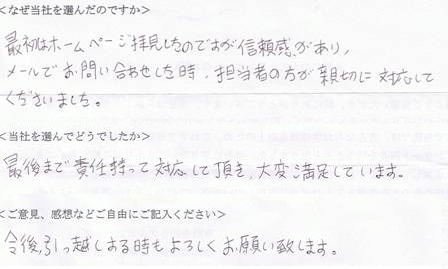 <なぜ当社を選んだのですか>
最初はホームページ拝見したのですが信頼感があり、
メールでお問い合わせした時、担当者の方が親切に対応して
くださいました。
<当社を選んでどうでしたか>
最後まで責任持って対応して頂き、大変満足しています。
<ご意見、感想などご自由にご記入ください>
今後、引っ越しする時もよろしくお願い致します。